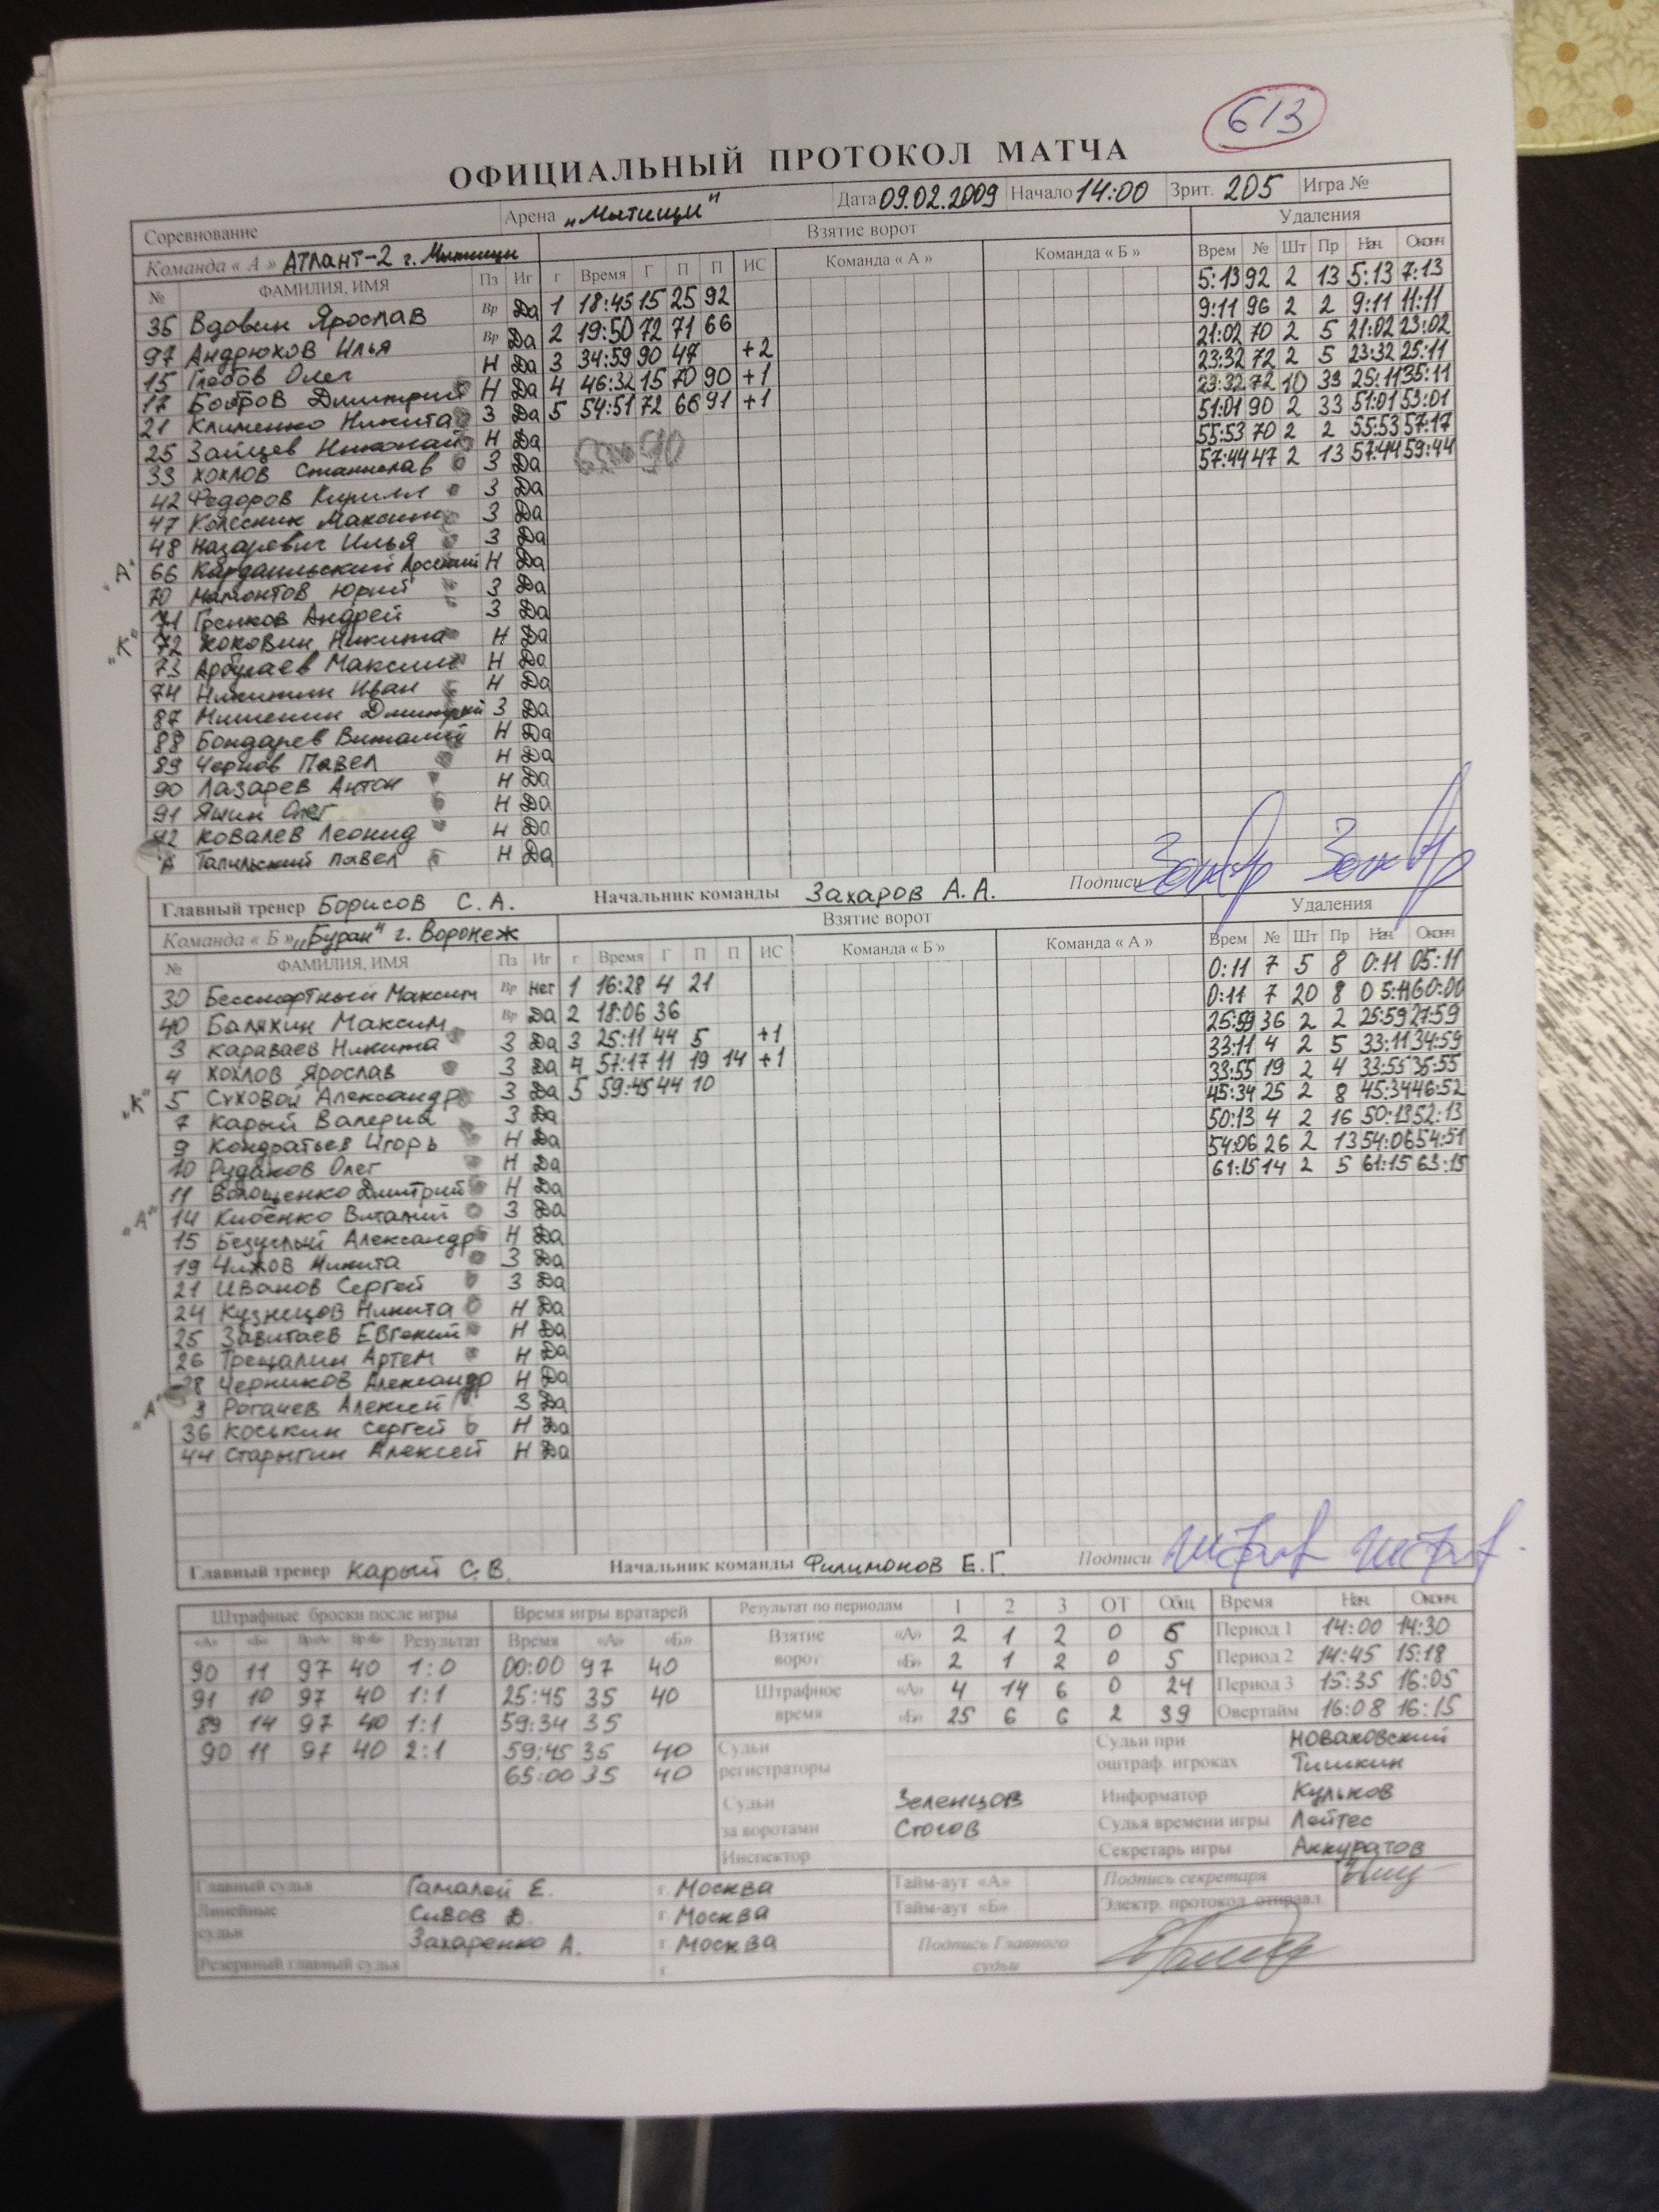 613
ОФИЦИАЛЬНЫЙ ПРОТОКОЛ МАТЧА
Соревнование Арена „Мытищи" Дата 09.02.2009 Начало 14:00 Зрит. 205 Игра №
Команда « А » Атлант-2 г. Мытищи Взятие ворот Удаления
№ ФАМИЛИЯ, ИМЯ Пз Иг г Время Г П П ИС Команда « А » Команда « Б » Врем № Шт Пр Нач Оконч
35 Вдовин Ярослав Вр Да 1 18:45 15 25 92 5:13 92 2 13 5:13 7:13
97 Андрюхов Илья Вр Да 2 19:50 72 71 66 9:11 96 2 2 9:11 11:11
15 Глебов Олег Н Да 3 34:59 90 47 +2 21:02 70 2 5 21:02 23:02
17 Бобров Дмитрий Н Да 4 46:32 15 70 90 +1 23:32 72 2 5 23:32 25:11
21 Клименко Никита З Да 5 54:51 72 66 91 +1 23:32 72 10 33 25:11 35:11
25 Зайцев Николай Н Да 51:01 90 2 33 51:01 53:01
33 Хохлов Станислав З Да 55:53 70 2 2 55:53 57:17
42 Федоров Кирилл З Да 57:44 47 2 13 57:44 59:44
47 Колесник Максим З Да
48 Назаревич Илья З Да
"А" 66 Арсений Н Да
70 Мамонтов Юрий З Да
71 Гренков Андрей З Да
"К" 72 Коковин Никита Н Да
73 Максим Н Да
74 Никитин Иван Н Да
87 Мишенин Дмитрий З Да
88 Бондарев Виталий Н Да
89 Чернов Павел Н Да
90 Лазарев Антон Н Да
91 Яшин Олег Н Да
92 Ковалев Леонид Н Да
Павел Н Да
Главный тренер Борисов С.А. Начальник команды Захаров А.А. Подписи
Команда « Б » „Буран" г. Воронеж Взятие ворот Удаления
№ ФАМИЛИЯ, ИМЯ Пз Иг г Время Г П П ИС Команда « Б » Команда « А » Врем № Шт Пр Нач Оконч
30 Бессмертный Максим Вр Нет 1 16:28 4 21 0:11 7 5 8 0:11 05:11
40 Баляхин Максим Вр Да 2 18:06 36 0:11 7 20 8 05:11 60:00
3 Караваев Никита З Да 3 25:11 44 5 +1 25:59 36 2 2 25:59 27:59
4 Хохлов Ярослав З Да 4 57:17 11 19 14 +1 33:11 4 2 5 33:11 34:59
"К" 5 Суховой Александр З Да 5 59:45 44 10 33:55 19 2 4 33:55 35:55
7 Карый Валерий З Да 45:34 25 2 8 45:34 46:52
9 Кондратьев Игорь Н Да 50:13 4 2 16 50:13 52:13
10 Рудаков Олег Н Да 54:06 26 2 13 54:06 54:51
11 Волощенко Дмитрий Н Да 61:15 14 2 5 61:15 63:15
"А" 14 Кибенко Виталий З Да
15 Безуглый Александр Н Да
19 Чижов Никита З Да
21 Иванов Сергей З Да
24 Кузнецов Никита Н Да
25 Завитаев Евгений Н Да
26 Трещалин Артем Н Да
28 Черников Александр Н Да
"А" 3 Рогачев Алексей З Да
36 Коськин Сергей Н Да
44 Старыгин Алексей Н Да
Главный тренер Карый С.В. Начальник команды Филимонов Е.Г. Подписи
Штрафные броски после игры Время игры вратарей Результат по периодам 1 2 3 ОТ Общ Время Нач Оконч
«А» «Б» Вр«А» Вр«Б» Результат Время «А» «Б» Взятие ворот «А» 2 1 2 0 5 Период 1 14:00 14:30
90 11 97 40 1:0 00:00 97 40 «Б» 2 1 2 0 5 Период 2 14:45 15:18
91 10 97 40 1:1 25:45 35 40 Штрафное время «А» 4 14 6 0 24 Период 3 15:35 16:05
89 14 97 40 1:1 59:34 35 «Б» 25 6 6 2 39 Овертайм 16:08 16:15
90 11 97 40 2:1 59:45 35 40 Судьи регистраторы Судьи при оштраф. игроках Новаковский
65:00 35 40 Тишкин
Судьи за воротами Зеленцов Информатор Кульков
Стогов Судья времени игры Лейтес
Инспектор Секретарь игры Аккуратов
Главный судья Гамалей Е. г. Москва Тайм-аут «А» Подпись секретаря
Линейные судьи Сивов Д. г. Москва Тайм-аут «Б» Электр. протокол отправл.
Захаренко А. г. Москва Подпись Главного судьи
Резервный главный судья г.